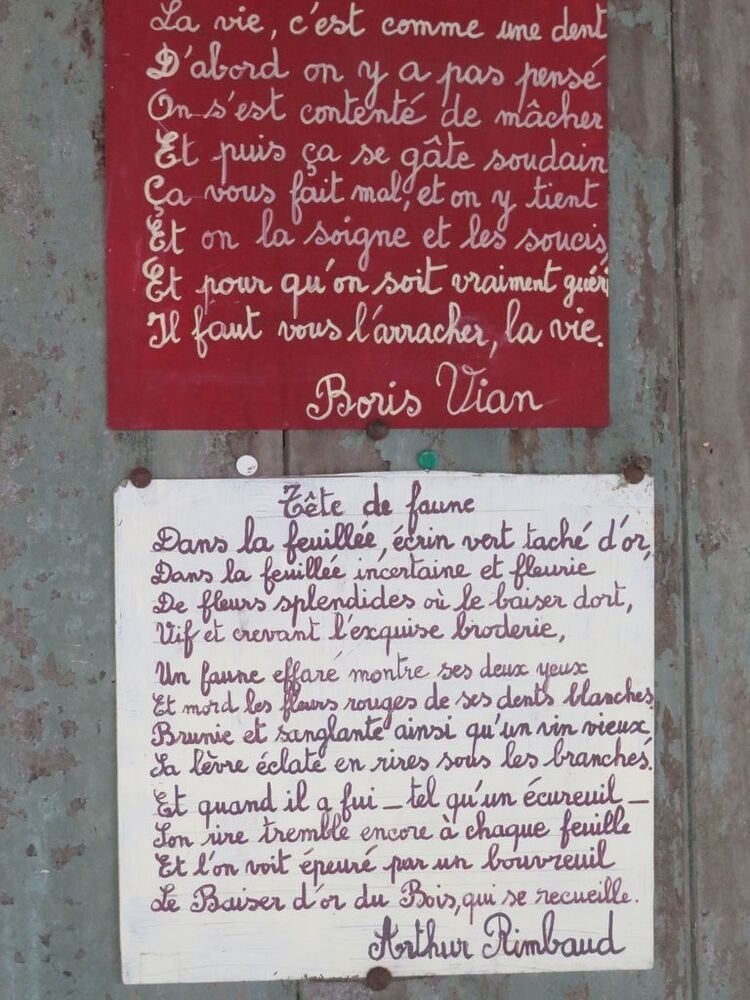 La vie, c'est comme une dent
D'abord on y a pas pensé
On s'est contenté de mâcher
Et puis ça se gâte soudain
Ça vous fait mal, et on y tient
Et on la soigne et les soucis,
Et pour qu'on soit vraiment guéri
Il faut vous l'arracher, la vie.
Boris Vian
Tête de faune
Dans la feuillée, écrin vert taché d'or,
Dans la feuillée incertaine et fleurie
De fleurs splendides où le baiser dort,
Vif et crevant l'exquise broderie,
Un faune effaré montre ses deux yeux
Et mord les fleurs rouges de ses dents blanches
Brunie et sanglante ainsi qu'un vin vieux
Sa lèvre éclate en rires sous les branches.
Et quand il a fui _ tel qu'un écureuil _
Son rire tremble encore à chaque feuille
Et l'on voit épeuré par un bouvreuil
Le Baiser d'or du Bois, qui se recueille.
Arthur Rimbaud